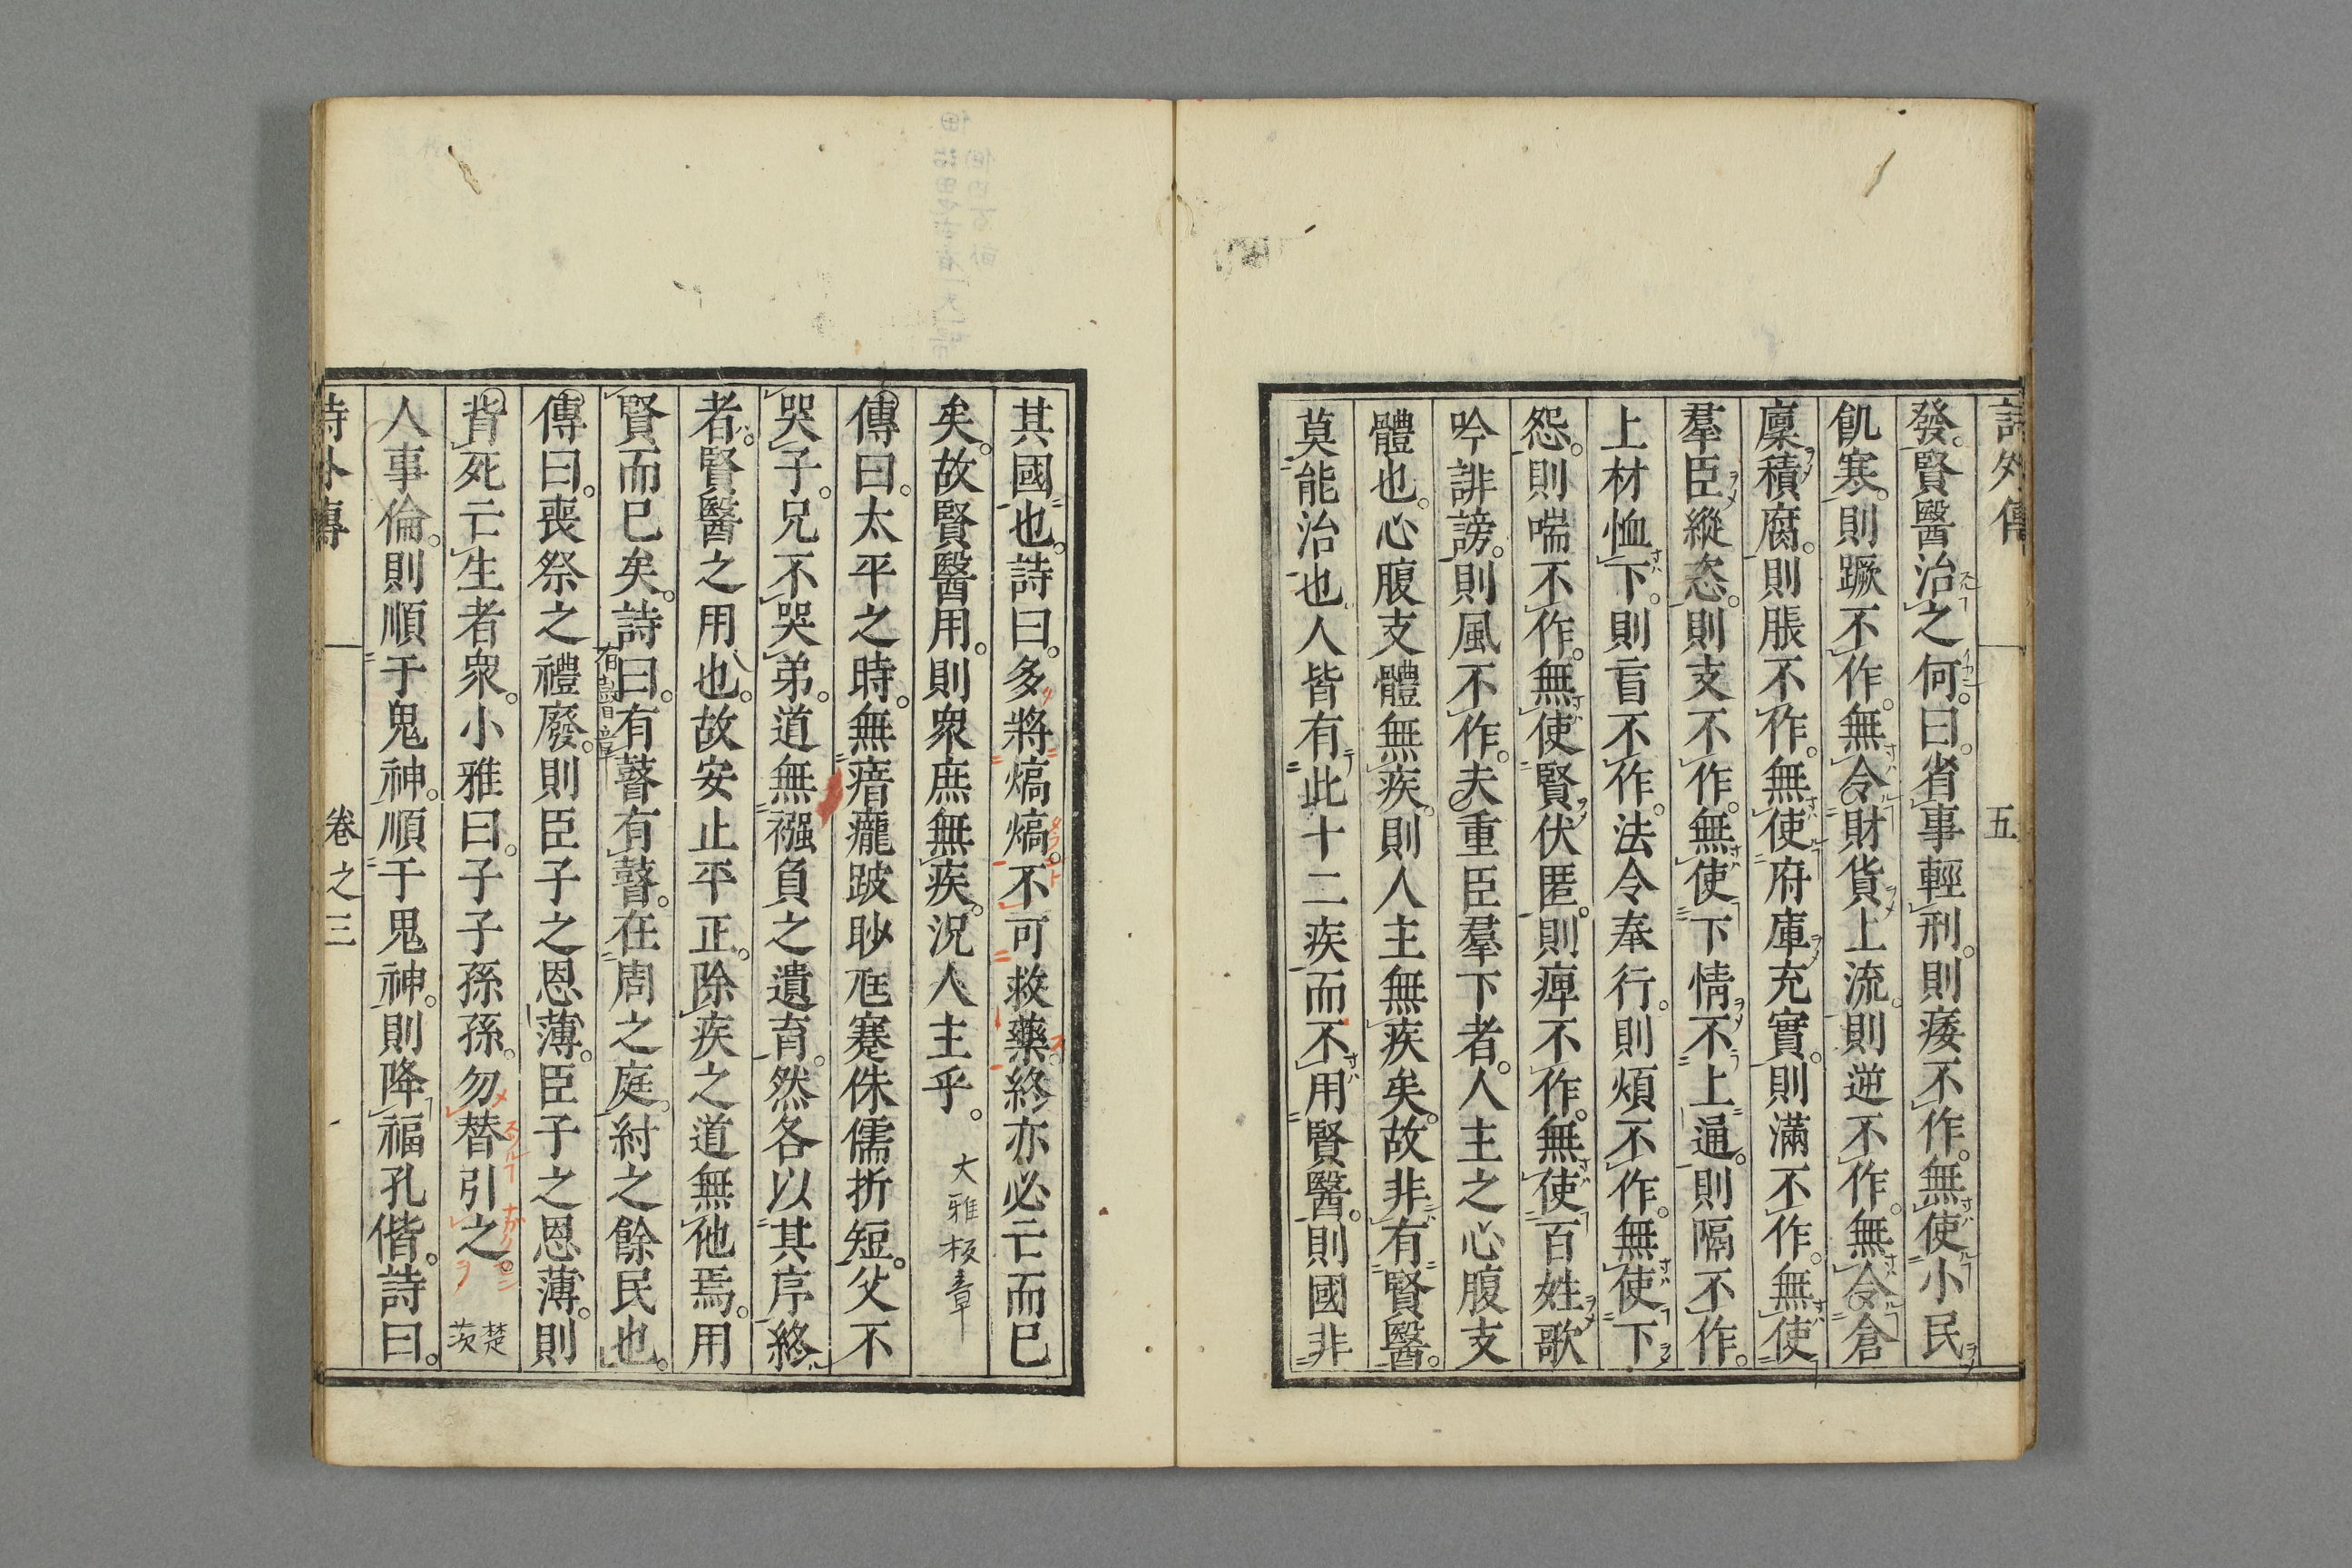 詩外傳 五
發。賢醫治之何。曰。省事輕刑。則痿不作。無使小民
飢寒。則蹶不作。無令財貨上流。則逆不作。無令倉
廩積腐。則脹不作。無使府庫充實。則滿不作。無使
羣臣縱恣。則支不作。無使下情不上通。則隔不作。
上材恤下。則盲不作。法令奉行。則煩不作。無使下
怨。則喘不作。無使賢伏匿。則痺不作。無使百姓歌
吟誹謗。則風不作。夫重臣羣下者。人主之心腹支
體也。心腹支體無疾。則人主無疾矣。故非有賢醫。
莫能治也人皆有此十二疾而不用賢醫。則國非
其國也。詩曰。多將熇熇。不可救藥。終亦必亡而已
矣。故賢醫用。則衆庶無疾。況人主乎。大雅板章
傳曰。太平之時。無瘖𤼵跛眇尪蹇侏儒折短。父不
哭子。兄不哭弟。道無襁負之遺育。然各以其序終
者。賢醫之用也。故安止平正。除疾之道無他焉。用
賢而已矣。詩曰。有瞽有瞽。在周之庭。紂之餘民也。
有瞽章
傳曰。喪祭之禮廢。則臣子之恩薄。臣子之恩薄。則
背死亡生者衆。小雅曰。子子孫孫。勿替引之。楚茨
人事倫。則順于鬼神。順于鬼神。則降福孔偕。詩曰。
詩外傳 卷之三